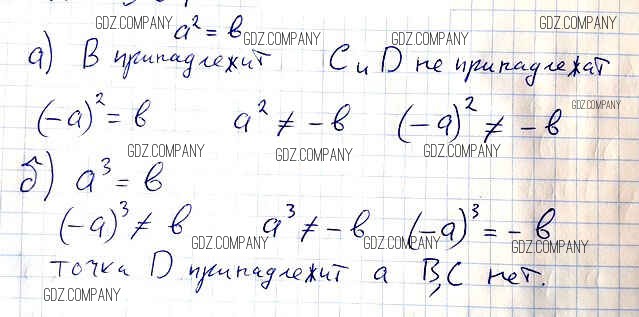 a² = b
а) B принадлежит C и D не принадлежат
(-a)² = b a² ≠ -b (-a)² ≠ -b
б) a³ = b
(-a)³ ≠ b a³ ≠ -b (-a)³ = -b
точка D принадлежит а B,C нет.
GDZ.COMPANY
GDZ.COMPANY
GDZ.COMPANY
GDZ.COMPANY
GDZ.COMPANY
GDZ.COMPANY
GDZ.COMPANY
GDZ.COMPANY
GDZ.COMPANY
GDZ.COMPANY
GDZ.COMPANY
GDZ.COMPANY
GDZ.COMPANY
GDZ.COMPANY